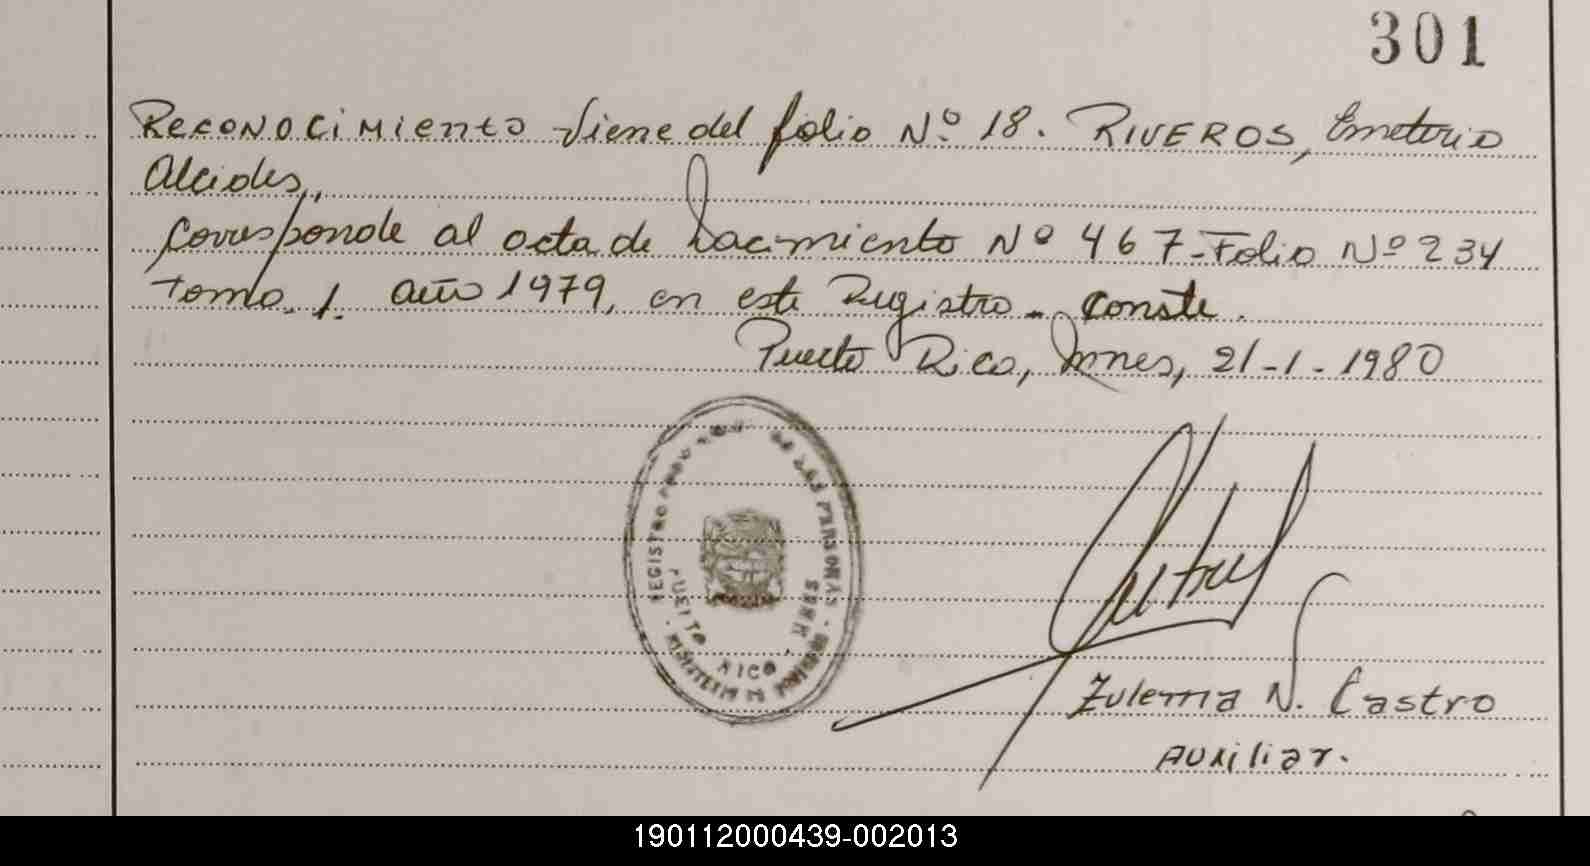 301
Reconocimiento Viene del folio Nº 18. RIVEROS, Emeterio
Alcides,
Corresponde al acta de Nacimiento Nº 467-Folio Nº 234
Tomo 1. año 1979, en este Registro - Conste.
Puerto Rico, Mnes, 21-1-1980
REGISTRO DE LAS PERSONAS
PUERTO RICO
MINISTERIO DE
Zulema N. Castro
Auxiliar.
190112000439-002013